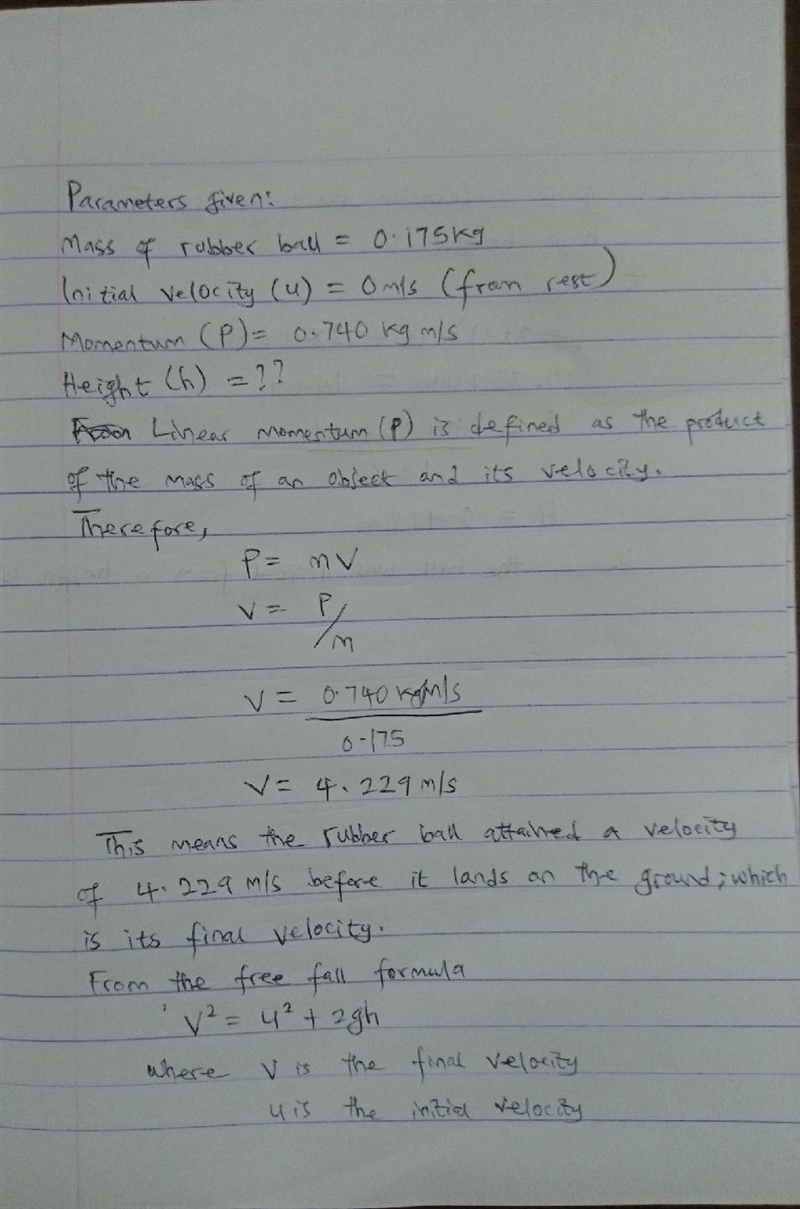 Parameters given:
Mass of rubber ball = 0.175kg
Initial velocity (u) = 0m/s (from rest)
Momentum (P) = 0.740 kg m/s
Height (h) = ??
Linear momentum (P) is defined as the product
of the mass of an object and its velocity.
Therefore,
P = mV
V = P/m
V = 0.740 kgm/s
0.175
V = 4.229 m/s
This means the rubber ball attained a velocity
of 4.229 m/s before it lands on the ground; which
is its final velocity.
From the free fall formula
V² = u² + 2gh
where V is the final velocity
u is the initial velocity